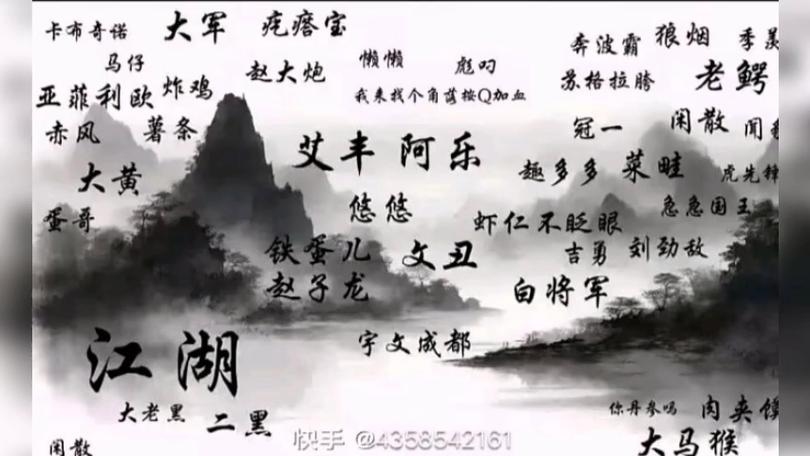 卡布奇诺 大军 疙瘩宝
奔波霸 狼烟 季羡
马仔 赵大炮 懒懒 彪叼
苏格拉胯 老鳄
亚菲利欧 炸鸡
我来找个角落按Q加血
赤风 薯条
冠一 闲散
艾丰 阿乐
大黄
趣多多 菜畦 虎先锋
蛋哥 悠悠
虾仁不眨眼 急急国王
铁蛋儿 文丑
吉勇 刘劲敌
赵子龙 白将军
江湖 宇文成都
大老黑 二黑
你丹参吗 肉夹馍
快手 @4358542161
闲散 大马猴